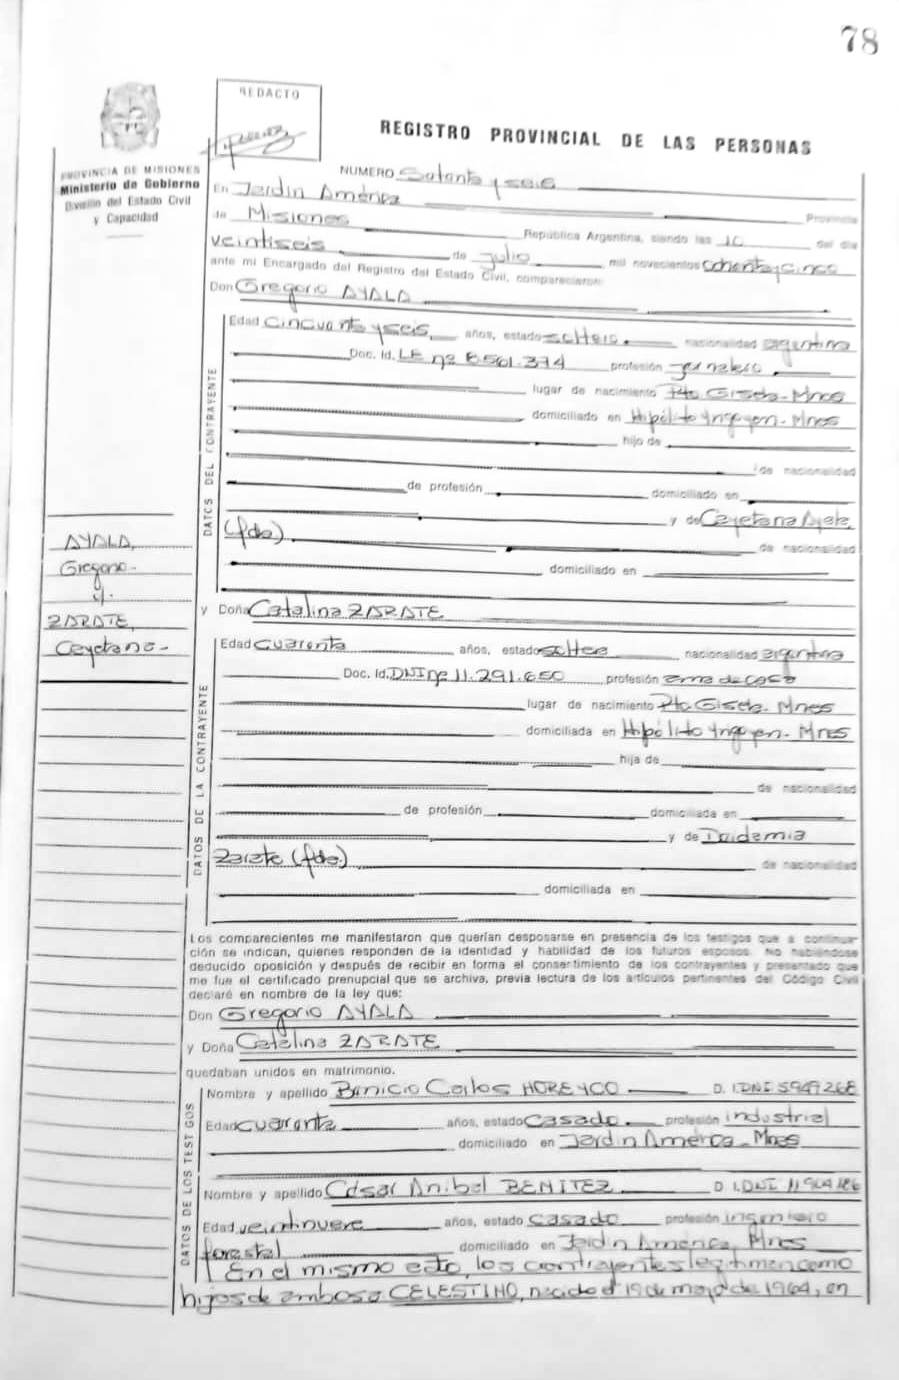 78
REDACTO
REGISTRO PROVINCIAL DE LAS PERSONAS
PROVINCIA DE MISIONES
Ministerio de Gobierno
División del Estado Civil
y Capacidad
NUMERO Setenta y seis
En Jardín América Provincia
de Misiones República Argentina, siendo las 10 del día
veintiseis de julio mil novecientos ochenta y cinco
ante mi Encargado del Registro del Estado Civil, comparecieron:
Don Gregorio AYALA
DATOS DEL CONTRAYENTE
Edad cincuenta y seis años, estado soltero nacionalidad argentina
Doc. Id. LE nº 6501.374 profesión jornalero
lugar de nacimiento Pto Gisela - Mnes
domiciliado en Hipólito Yrigoyen - Mnes
hijo de
de nacionalidad
de profesión domiciliado en
y de Cayetana Ayala
(fda) de nacionalidad
domiciliado en
AYALA,
Gregorio -
y.
ZARATE,
Cayetana -
y Doña Catalina ZARATE
DATOS DE LA CONTRAYENTE
Edad cuarenta años, estado soltera nacionalidad argentina
Doc. Id. DNI nº 11.291.650 profesión ama de casa
lugar de nacimiento Pto Gisela - Mnes
domiciliada en Hipólito Yrigoyen - Mnes
hija de
de nacionalidad
de profesión domiciliada en
y de Deidamia
Zarate (fda) de nacionalidad
domiciliada en
Los comparecientes me manifestaron que querían desposarse en presencia de los testigos que a continua-
ción se indican, quienes responden de la identidad y habilidad de los futuros esposos. No habiéndose
deducido oposición y después de recibir en forma el consentimiento de los contrayentes y presentado que
me fue el certificado prenupcial que se archiva, previa lectura de los artículos pertinentes del Código Civil
declaré en nombre de la ley que:
Don Gregorio AYALA
y Doña Catalina ZARATE
quedaban unidos en matrimonio.
DATOS DE LOS TESTIGOS
Nombre y apellido Benicio Carlos HOREYCO D. I. DNI 5949268
Edad cuarenta años, estado casado profesión industrial
domiciliado en Jardín América - Mnes
Nombre y apellido César Anibal BENITEZ D. I. DNI 11904186
Edad veintinueve años, estado casado profesión ingeniero
forestal domiciliado en Jardín América, Mnes
En el mismo acto, los contrayentes legitiman como
hijos de ambos a CELESTINO, nacido el 19 de mayo de 1964, en